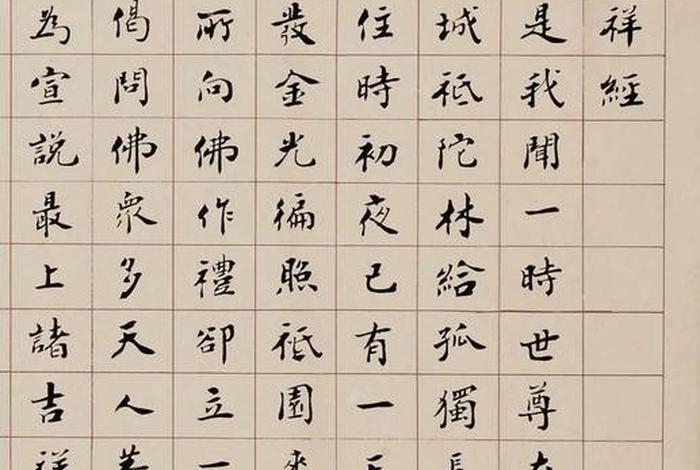 祥經
是我聞一時世尊
城祇陀林給孤獨長
住時初夜已有一天
發金光徧照祇園來
所向佛作禮卻立一
偈問佛衆多天人
為宣說最上諸吉祥